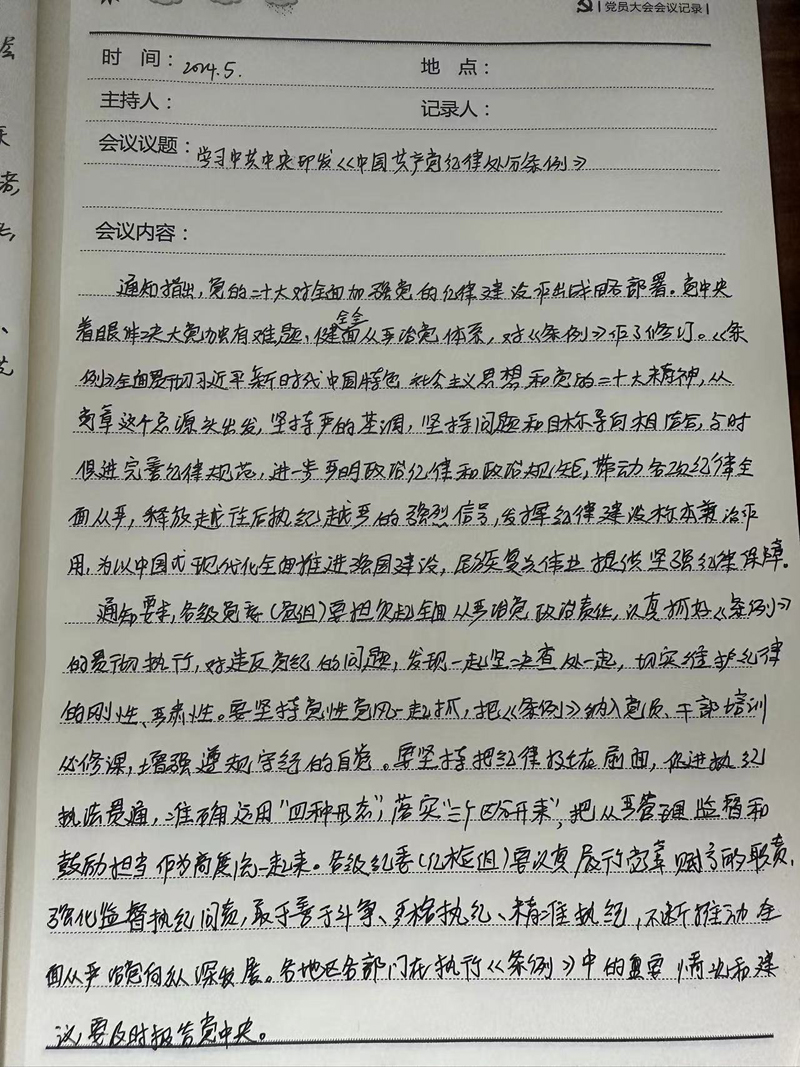 党员大会会议记录
时 间：2024.5.
地 点：
主持人：
记录人：
会议议题：学习中共中央印发《中国共产党纪律处分条例》
会议内容：
通知指出，党的二十大对全面加强党的纪律建设作出战略部署。党中央
着眼解决大党独有难题、健全全面从严治党体系，对《条例》作了修订。《条
例》全面贯彻习近平新时代中国特色社会主义思想和党的二十大精神，从
党章这个总源头出发，坚持严的基调，坚持问题和目标导向相结合，与时
俱进完善纪律规范，进一步严明政治纪律和政治规矩，带动各项纪律全
面从严，释放越往后执纪越严的强烈信号，发挥纪律建设标本兼治作
用，为以中国式现代化全面推进强国建设，民族复兴伟业提供坚强纪律保障。
通知要求，各级党委（党组）要担负起全面从严治党政治责任，认真抓好《条例》
的贯彻执行，对违反党纪的问题，发现一起坚决查处一起，切实维护纪律
的刚性、严肃性。要坚持党性党风一起抓，把《条例》纳入党员、干部培训
必修课，增强遵规守纪的自觉。要坚持把纪律挺在前面，促进执纪
执法贯通，准确运用"四种形态"，落实"三个区分开来"，把从严管理监督和
鼓励担当作为高度统一起来。各级纪委（纪检组）要认真履行党章赋予的职责，
强化监督执纪问责，敢于善于斗争、严格执纪、精准执纪，不断推动全
面从严治党向纵深发展。各地区各部门在执行《条例》中的重要情况和建
议，要及时报告党中央。
者，